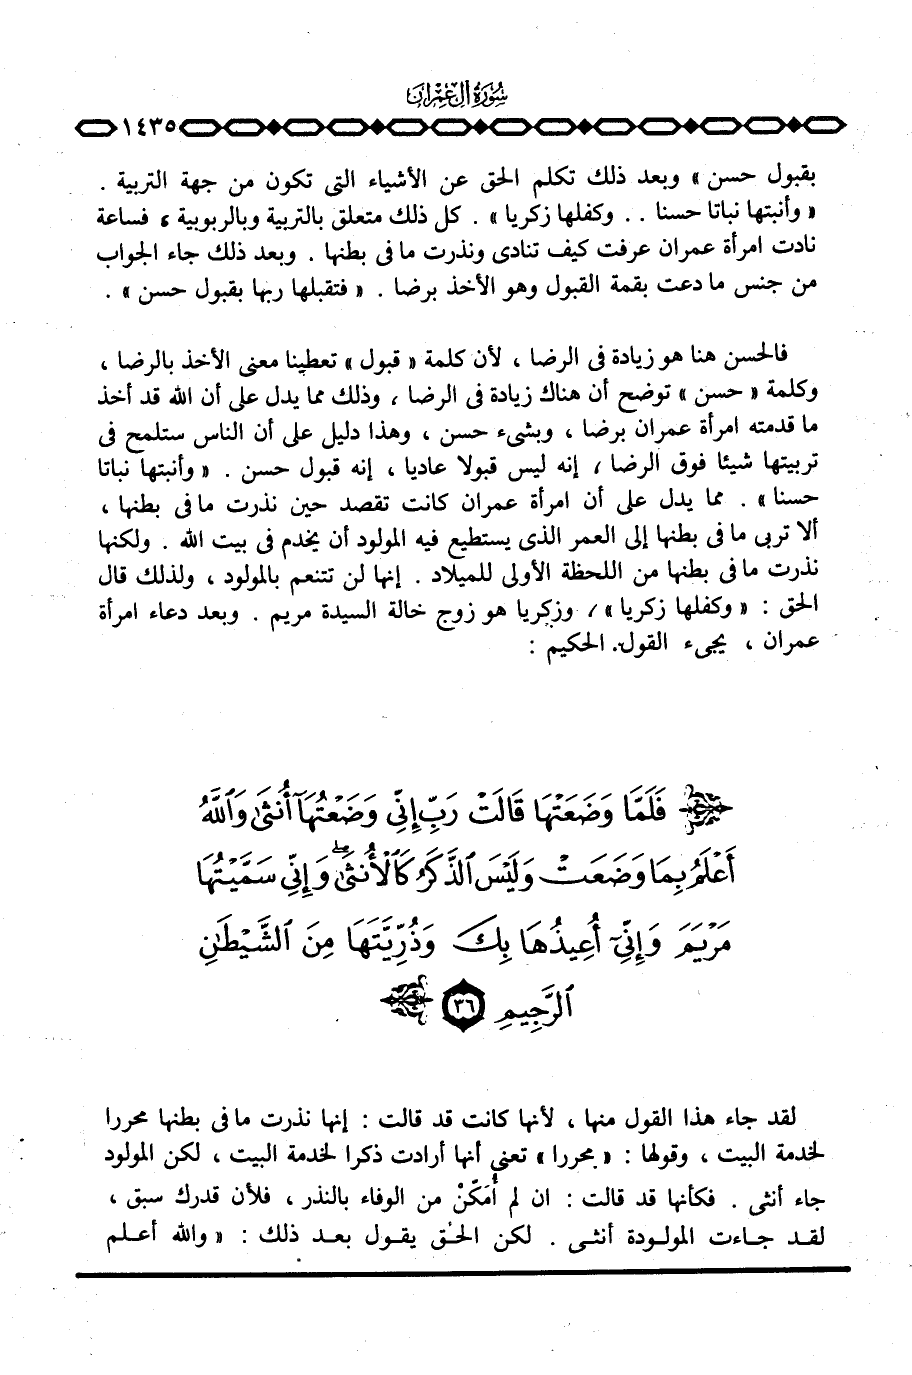 سُورَةُ آلِ عِمْرَانَ
١٤٣٥
بقبول حسن » وبعد ذلك تكلم الحق عن الأشياء التى تكون من جهة التربية .
« وأنبتها نباتا حسنا . . وكفلها زكريا » . كل ذلك متعلق بالتربية وبالربوبية ، فساعة
نادت امرأة عمران عرفت كيف تنادى ونذرت ما فى بطنها . وبعد ذلك جاء الجواب
من جنس ما دعت بقمة القبول وهو الأخذ برضا . « فتقبلها ربها بقبول حسن » .
فالحسن هنا هو زيادة فى الرضا ، لأن كلمة « قبول » تعطينا معنى الأخذ بالرضا ،
وكلمة « حسن » توضح أن هناك زيادة فى الرضا ، وذلك مما يدل على أن الله قد أخذ
ما قدمته امرأة عمران برضا ، وبشىء حسن ، وهذا دليل على أن الناس ستلمح فى
تربيتها شيئا فوق الرضا ، إنه ليس قبولا عاديا ، إنه قبول حسن . « وأنبتها نباتا
حسنا » . مما يدل على أن امرأة عمران كانت تقصد حين نذرت ما فى بطنها ،
ألا تربى ما فى بطنها إلى العمر الذى يستطيع فيه المولود أن يخدم فى بيت الله . ولكنها
نذرت ما فى بطنها من اللحظة الأولى للميلاد . إنها لن تتنعم بالمولود ، ولذلك قال
الحق : « وكفلها زكريا » ، وزكريا هو زوج خالة السيدة مريم . وبعد دعاء امرأة
عمران ، يجىء القول الحكيم :
فَلَمَّا وَضَعَتْهَا قَالَتْ رَبِّ إِنِّي وَضَعْتُهَآ أُنثَىٰ وَٱللَّهُ
أَعْلَمُ بِمَا وَضَعَتْ وَلَيْسَ ٱلذَّكَرُ كَٱلْأُنثَىٰ ۖ وَإِنِّي سَمَّيْتُهَا
مَرْيَمَ وَإِنِّيٓ أُعِيذُهَا بِكَ وَذُرِّيَّتَهَا مِنَ ٱلشَّيْطَٰنِ
ٱلرَّجِيمِ ٣٦
لقد جاء هذا القول منها ، لأنها كانت قد قالت : إنها نذرت ما فى بطنها محررا
لخدمة البيت ، وقولها : « محررا » تعنى أنها أرادت ذكرا لخدمة البيت ، لكن المولود
جاء أنثى . فكأنها قد قالت : ان لم أُمَكّنْ من الوفاء بالنذر ، فلأن قدرك سبق ،
لقد جاءت المولودة أنثى . لكن الحق يقول بعد ذلك : « والله أعلم